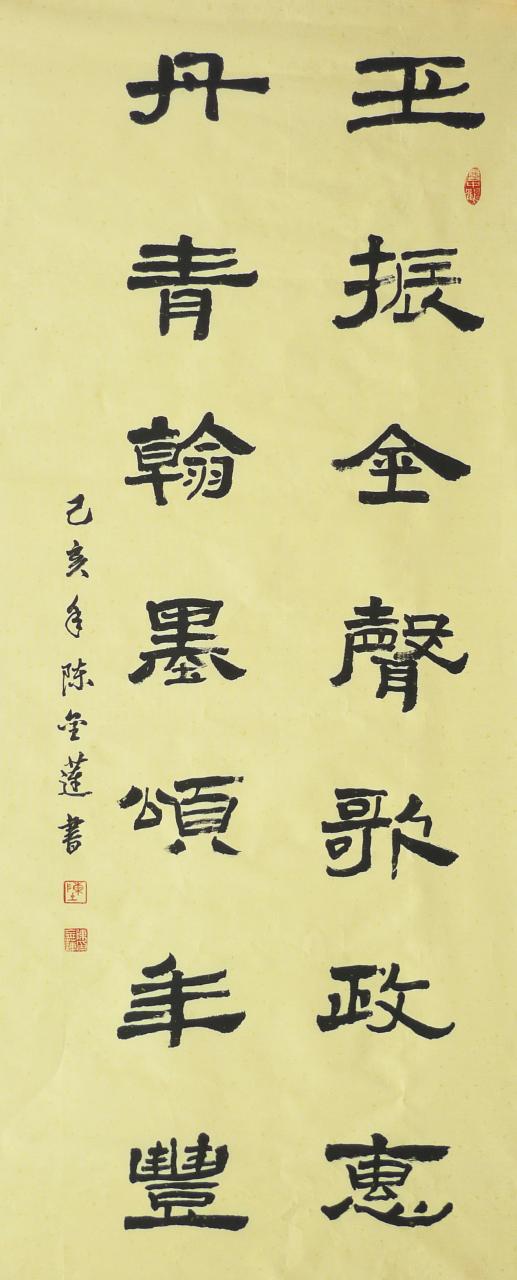 玉振金聲歌政惠
丹青翰墨頌年豐
己亥年陈金蓮書